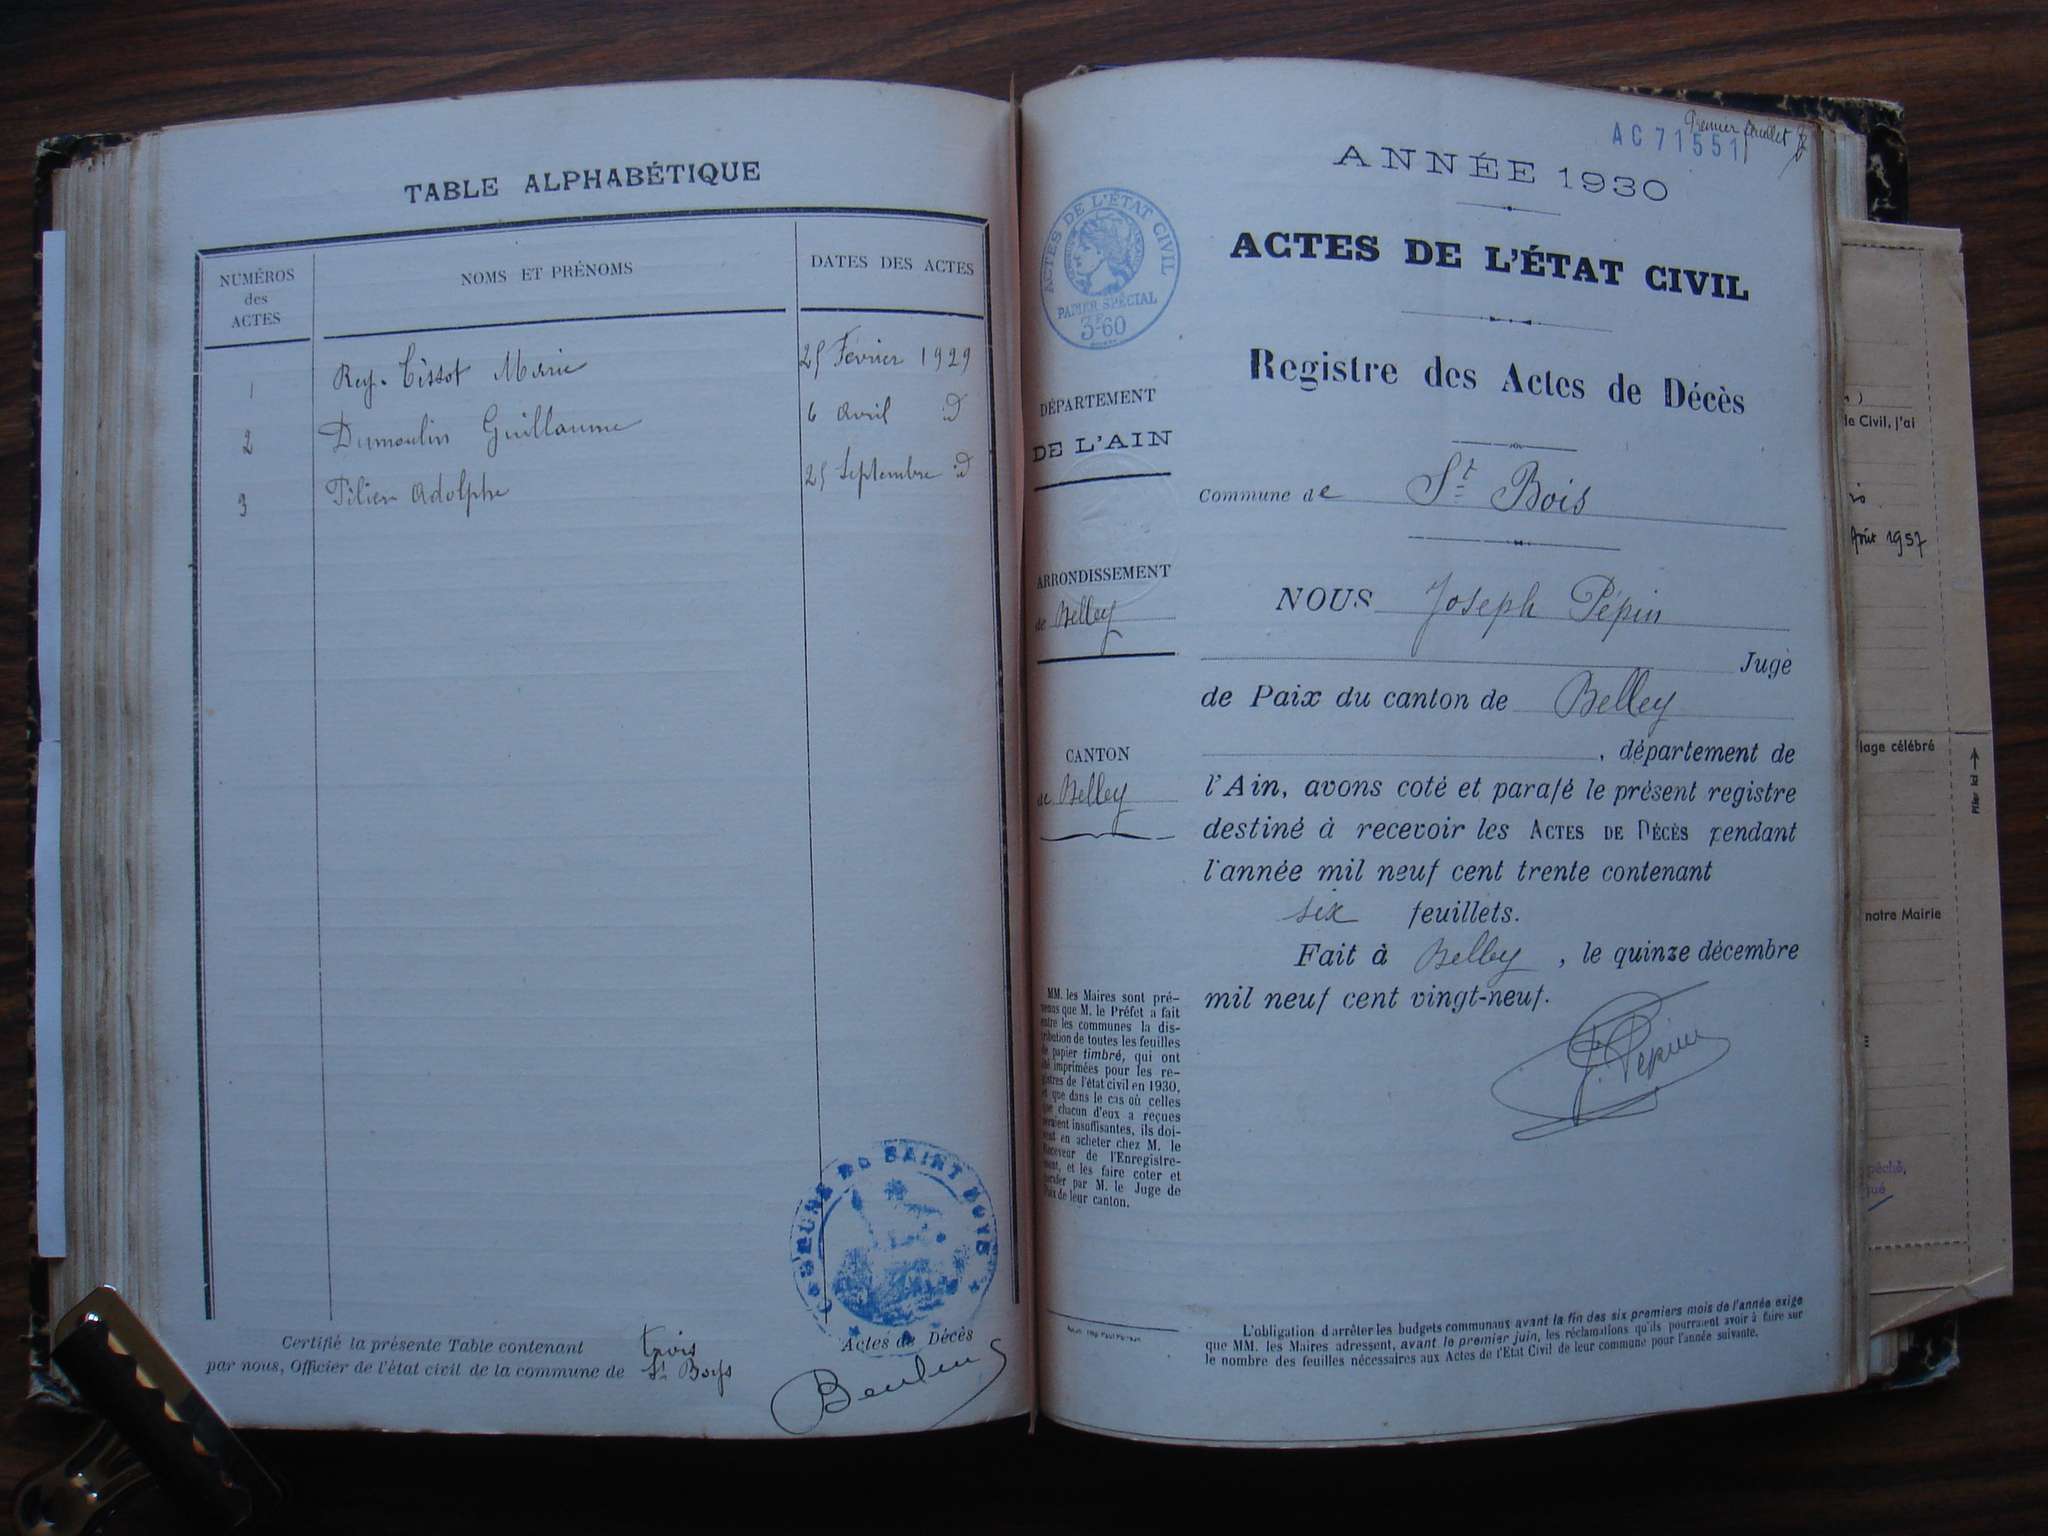 TABLE ALPHABÉTIQUE
NUMÉROS
des
ACTES
NOMS ET PRÉNOMS
DATES DES ACTES
1 Rey-Tissot Marie 25 Février 1929
2 Dumoulin Guillaume 6 Avril id
3 Pilien Adolphe 25 Septembre id
Certifié la présente Table contenant trois Actes de Décès
par nous, Officier de l'état civil de la commune de St Boys
COMMUNE DE SAINT BOYS
Premier feuillet
AC 71551
ANNÉE 1930
ACTES DE L'ÉTAT CIVIL
PAPIER SPÉCIAL
3F60
ACTES DE L'ÉTAT CIVIL
Registre des Actes de Décès
DÉPARTEMENT
DE L'AIN
Commune de St Bois
ARRONDISSEMENT
de Belley
CANTON
de Belley
NOUS Joseph Pépin
Juge
de Paix du canton de Belley
, département de
l'Ain, avons coté et parafé le présent registre
destiné à recevoir les ACTES DE DÉCÈS pendant
l'année mil neuf cent trente contenant
six feuillets.
Fait à Belley, le quinze décembre
mil neuf cent vingt-neuf.
J. Pépin
MM. les Maires sont pré-
venus que M. le Préfet a fait
entre les communes la dis-
tribution de toutes les feuilles
de papier timbré, qui ont
été imprimées pour les re-
gistres de l'état civil en 1930,
et que dans le cas où celles
que chacun d'eux a reçues
seraient insuffisantes, ils doi-
vent en acheter chez M. le
Receveur de l'Enregistre-
ment, et les faire coter et
parafer par M. le Juge de
Paix de leur canton.
L'obligation d'arrêter les budgets communaux avant la fin des six premiers mois de l'année exige
que MM. les Maires adressent, avant le premier juin, les réclamations qu'ils pourraient avoir à faire sur
le nombre des feuilles nécessaires aux Actes de l'Etat Civil de leur commune pour l'année suivante.
de Civil, j'ai
Août 1957
lage célébré
Plier ici
notre Mairie